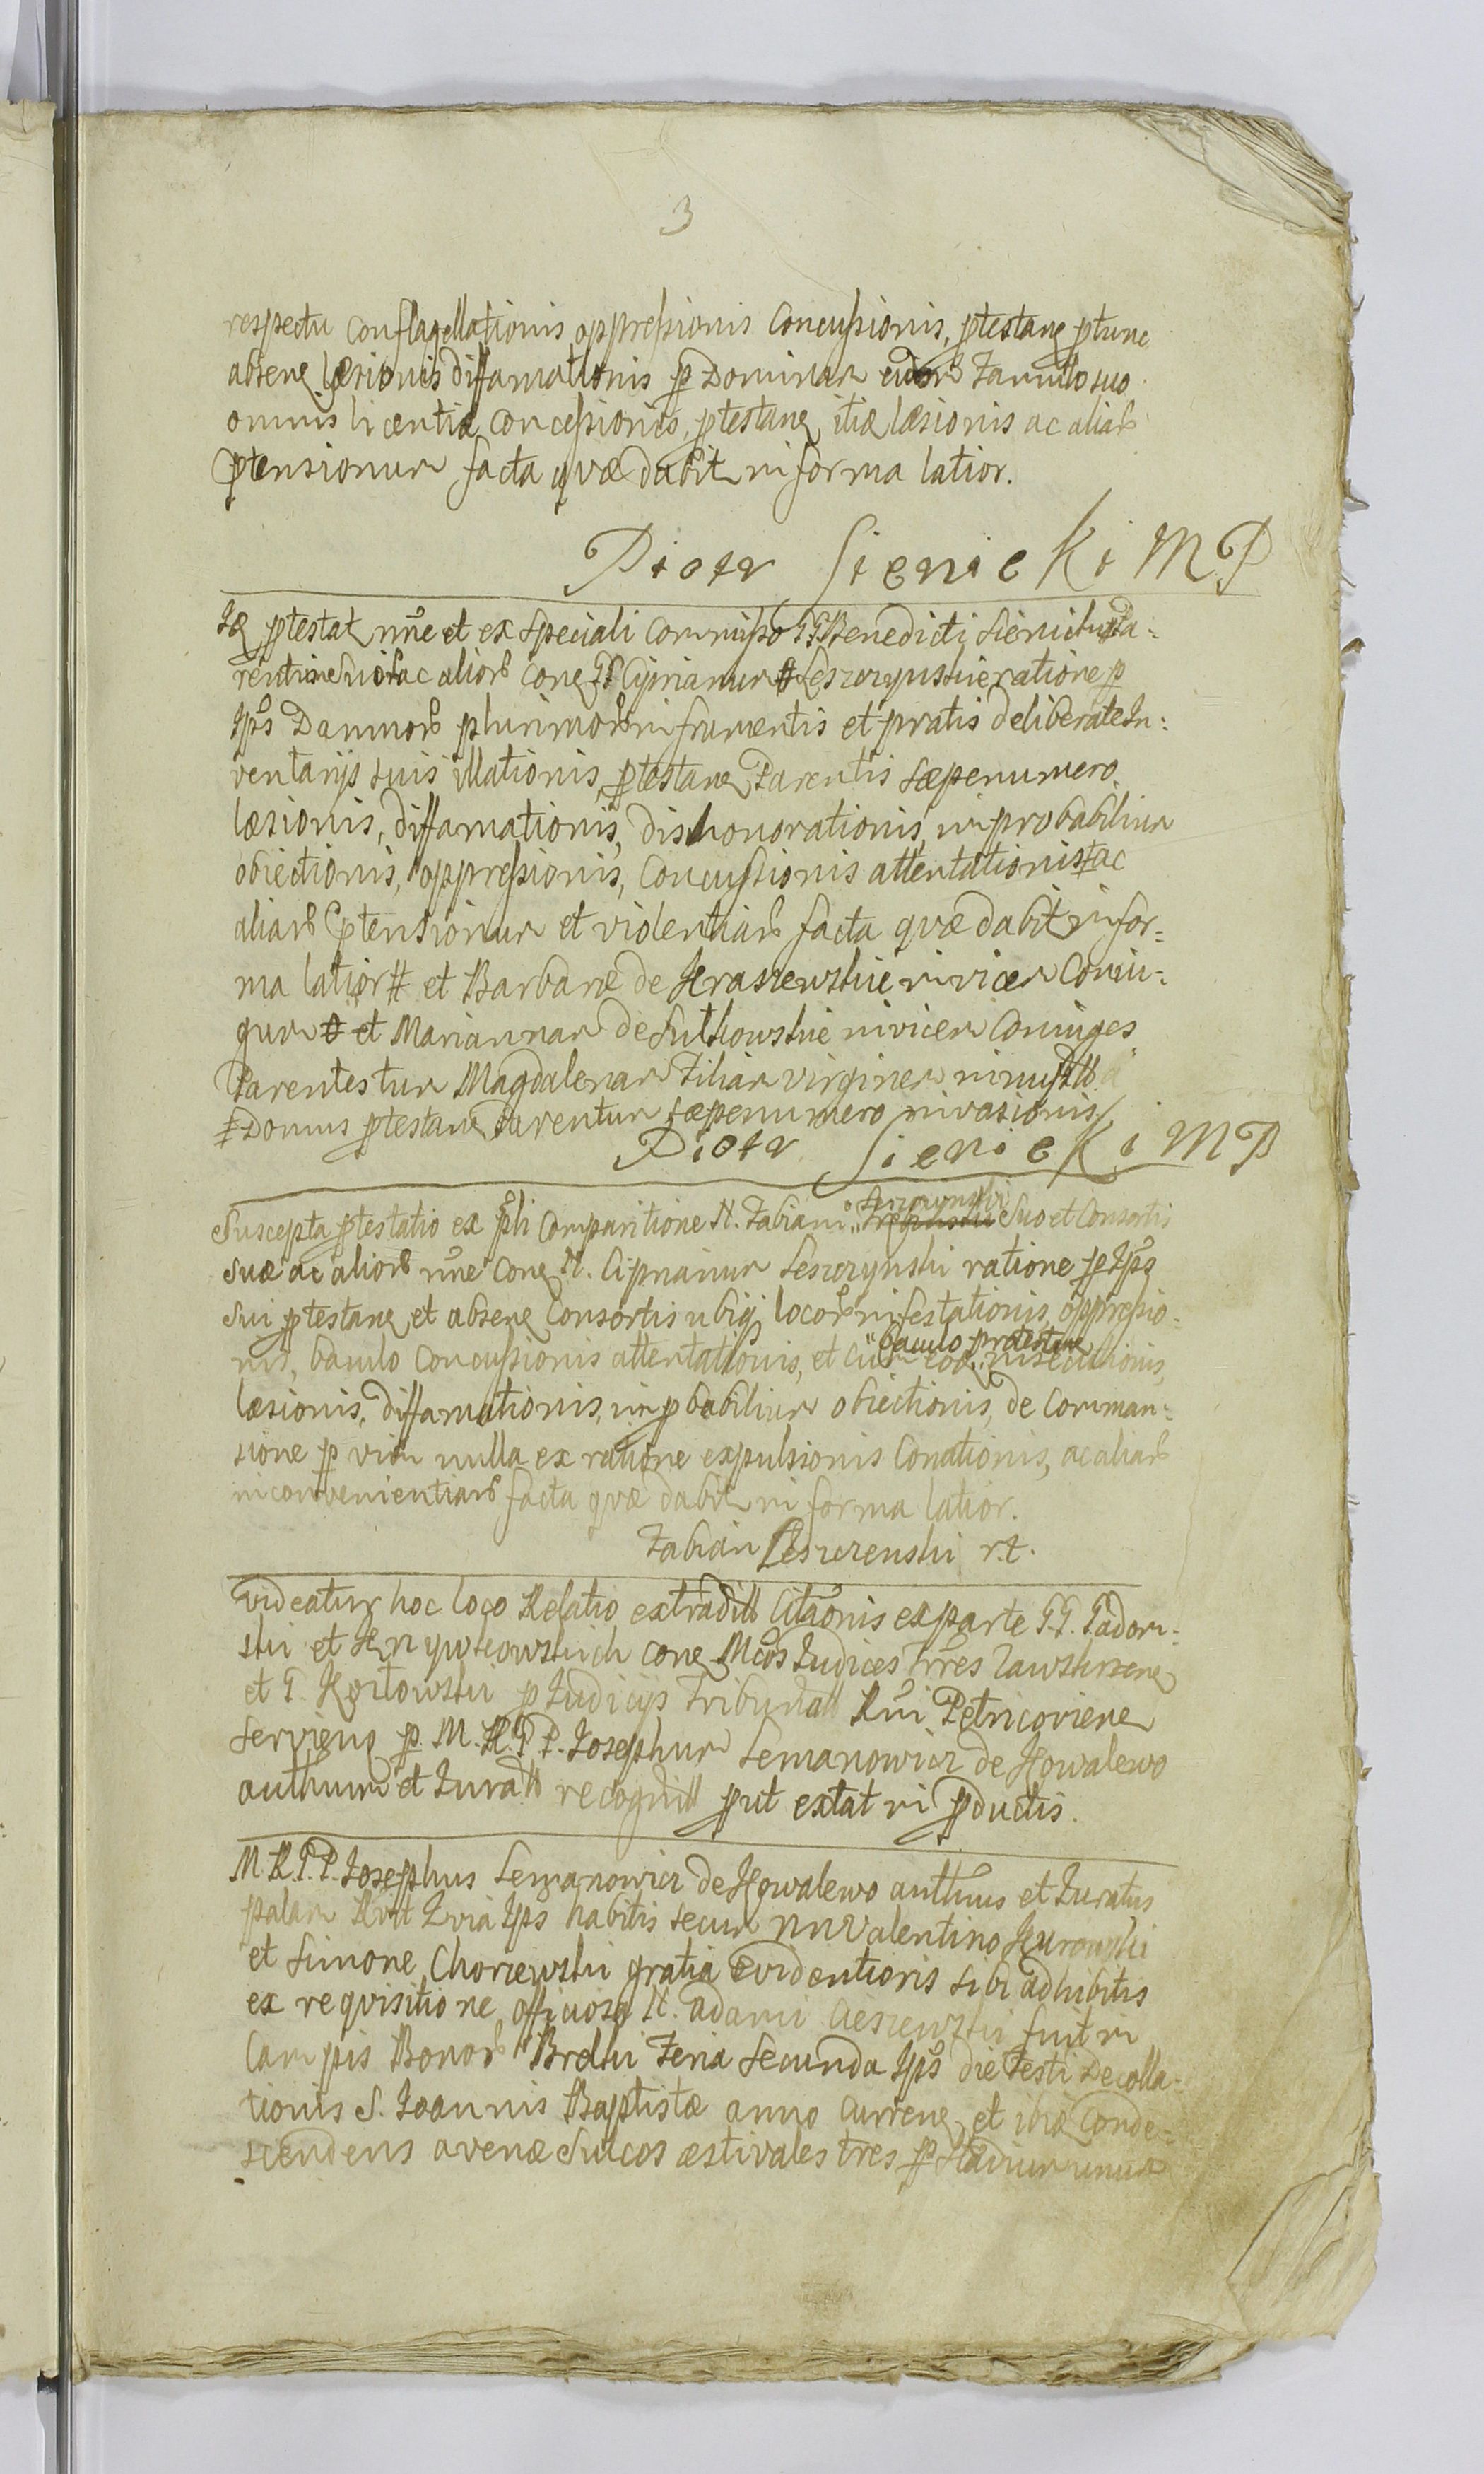 3
respectu Conflagellationis oppressionis Concussionis, ptestang ptunc
abseng læsionis diffamationis p Dominam eidem Famulo suo
omnis licentiæ concessionis, ptestang itiæ læsionis ac aliarb
ptensionum facta qvæ dabit in forma latior.
Piotr Sienicki MP
It ptestat nne et ex speciali Commisso GG Benedicti Sienicki Pa-
rentine suor ac aliorb cong G Ciprianum # Leszczynskie ratione p
Ips Damnorb plurimorb in frumentis et pratis deliberate In-
ventarijs suis illationis, ptestang Parentis sæpenumero
læsionis, diffamationis, dishonorationis, improbabilium
obiectionis, oppressionis, Concussionis attentationis ǂ ac
aliarb ptensionum et violentiarb facta qvæ dabit in for-
ma latior # et Barbaræ de Kraszewskie invicem Coniu-
gum et Mariannam de Sutkowskie invicem Coniuges
Parentes tum Magdalenam Filiam virginem
ǂ Domus ptestang Parentum sæpenumero invasionis
Piotr Sienicki MP
Suscepta ptestatio ex pli Comparitione N. Fabiani Leszczynski Suo et Consortis
suæ ac aliorb nne Cong N. Ciprianum Leszczynski ratione p Ips
sui ptestang et abseng Consortis ubiq locorb infestationis, oppressio-
nis, baculo Concussionis attentationis, et cum eod " baculo protestang " insecutionis,
læsionis, diffamationis, impbabilium obiectionis, de Comman-
sione p vim nulla ex ratione expulsionis Conationis, ac aliarb
inconvenientiarb facta qvæ dabit in forma latior.
Fabian Leszczenski r.t.
Videatur hoc loco Relatio extradittb Citaonis ex parte GG. Gadom-
ski et Krzywkowskich cong Mcos Iudices Trres Zawskrzeng
et G. Kozłowski p Iudicijs Tribunalb Rni Petricovieng
servieng p. M.R.P.P. Josephum Semanowicz de Kowalewo
authum et Iuratb recognitb put extat in pductis.
M.R.P.P. Josephus Semanowicz de Kowalewo authus et Iuratus
palam Rvit Qvia Ips habitis secum NN Valentino Kurowski
et Simone Chorzewski gratia Evidentioris sibi adhibitis
ex reqvisitione officiosa N. Adami Cieszewski fuit in
Campis Bonorb Brdki Feria Secunda Ips die Festi Decolla-
tionis S. Joannis Baptistæ anno Curreng et ibiæ Conde-
scendens avenæ Sulcos æstivales tres p stadium unum